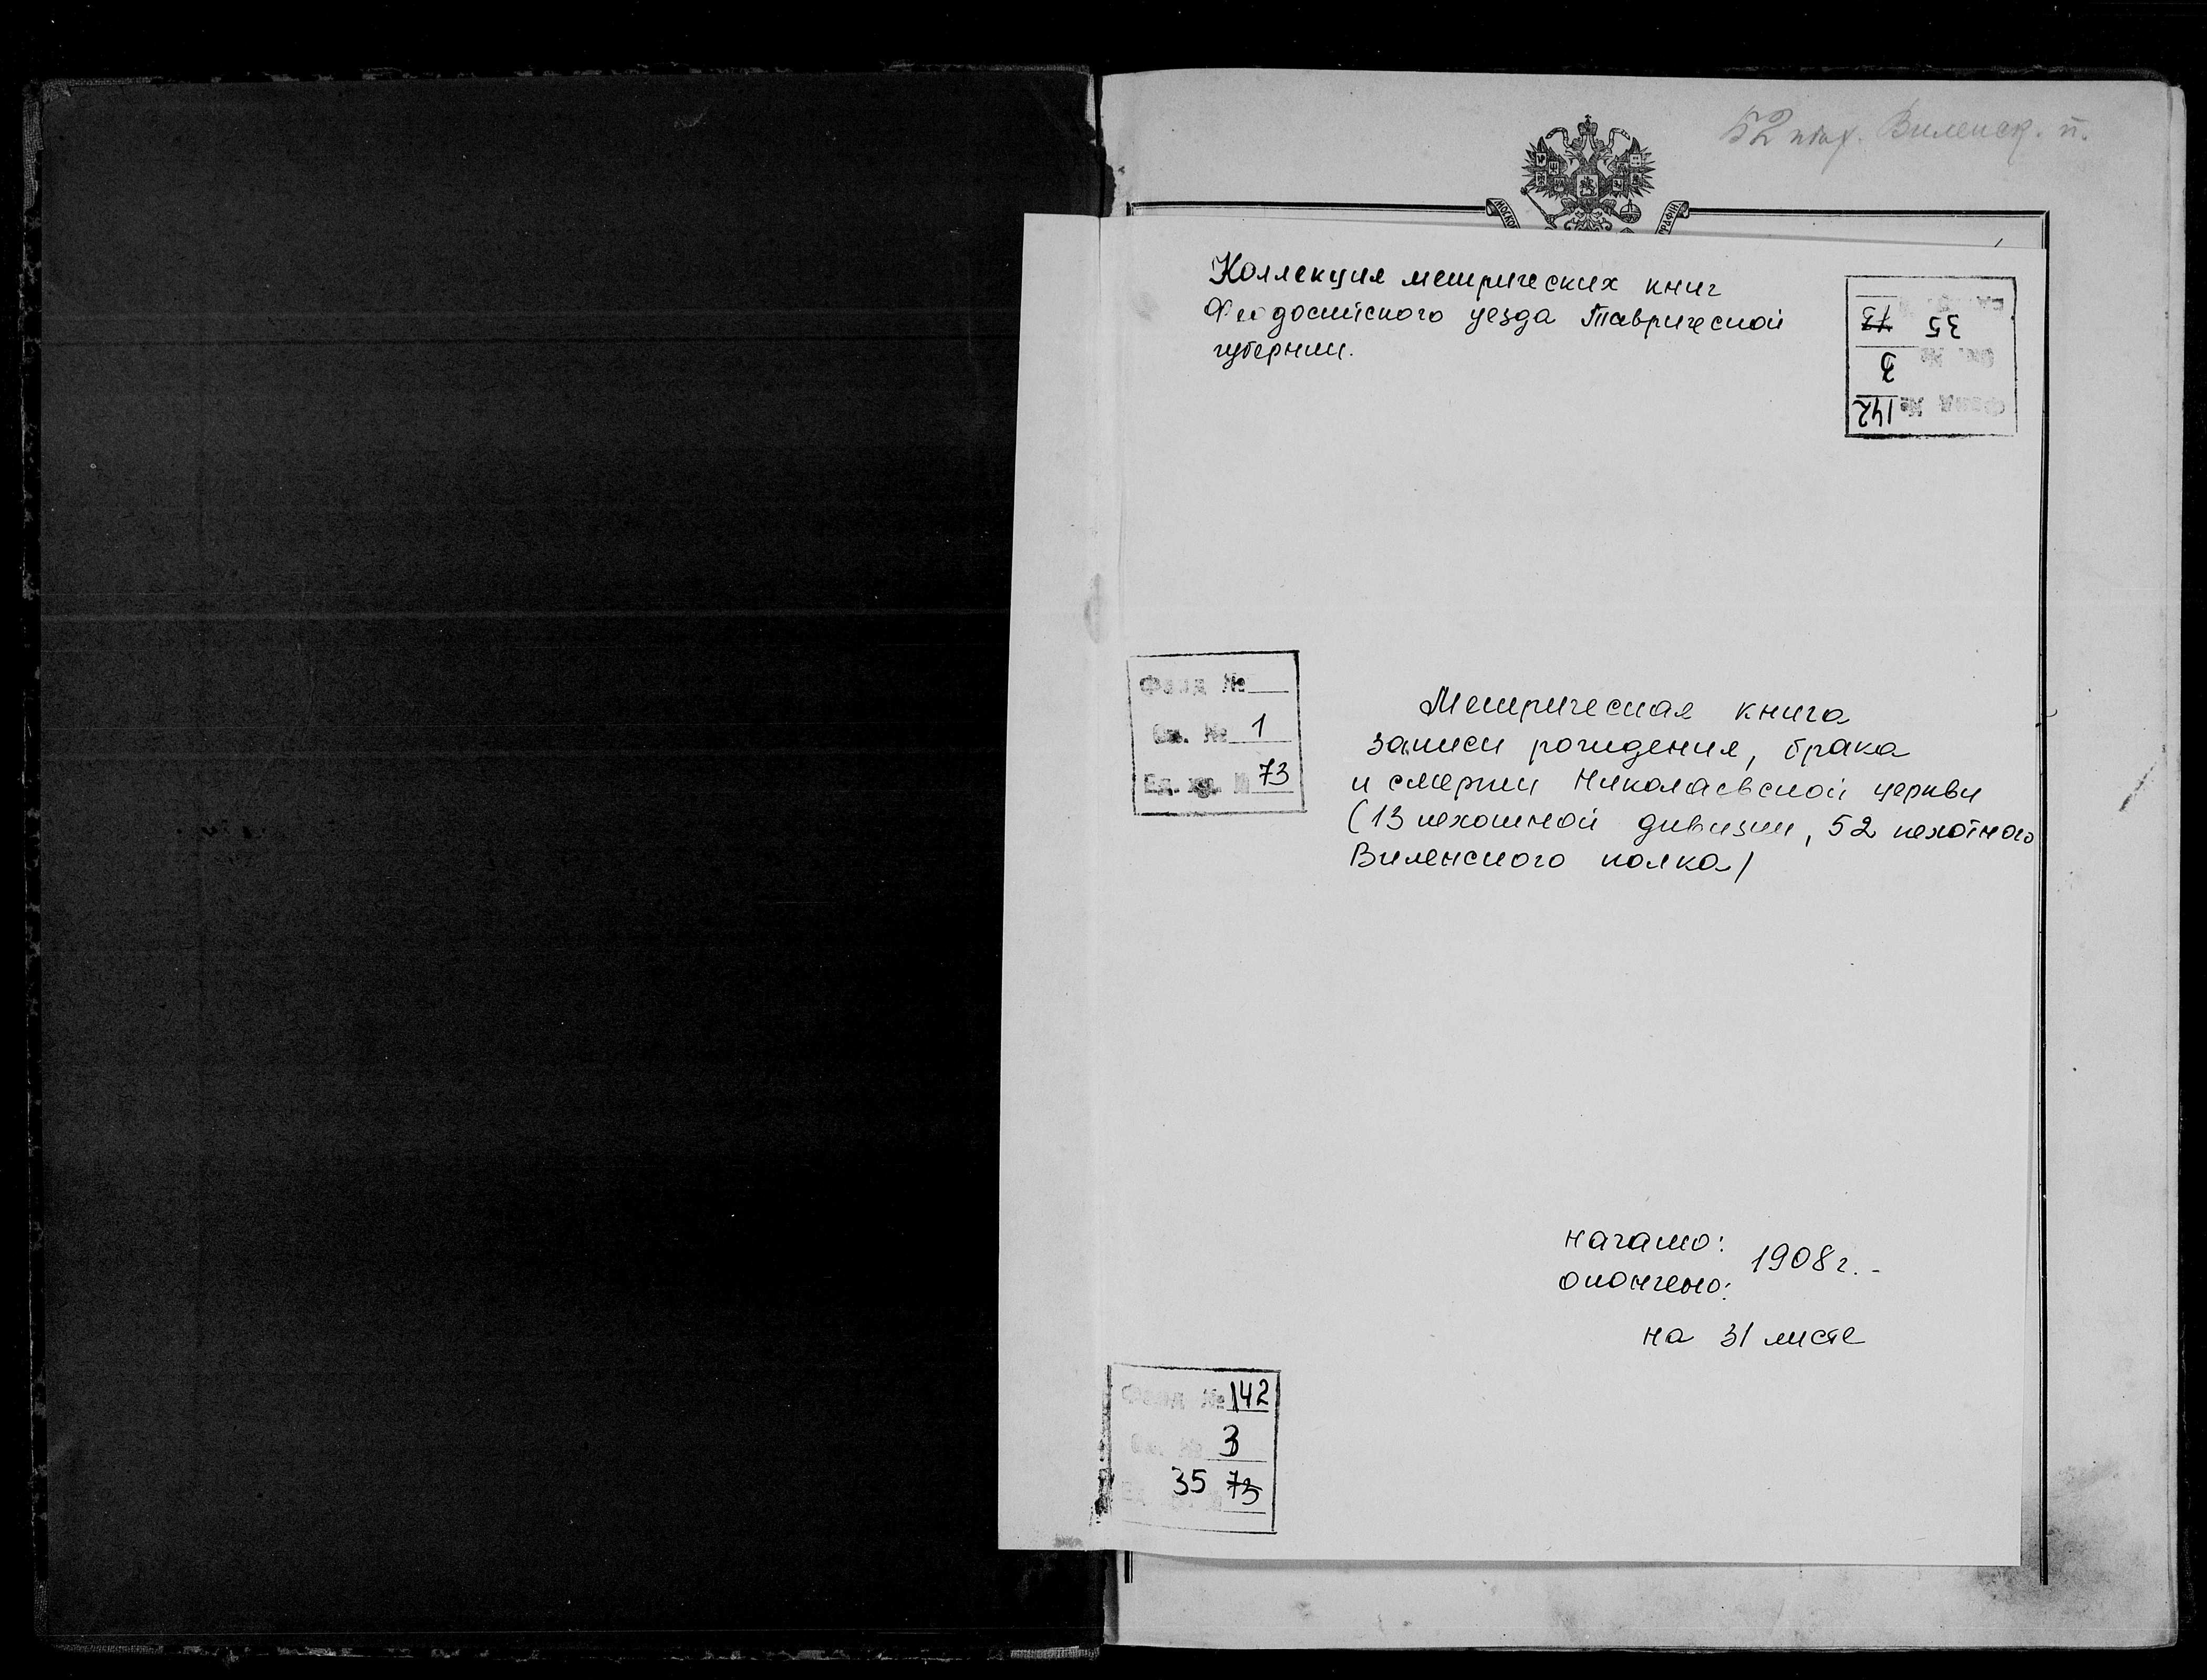 52 пѣх. Виленск. п.
Коллекция метрических книг
Феодосийского уезда Таврической
губернии.
Ед. хр. № 73 35
Оп. № 3
Фонд № 142
Фонд №
Оп. № 1
Ед. хр. № 73
Метрическая книга
записи рождения, брака
и смерти Николаевской церкви
(13 пехотной дивизии, 52 пехотного
Виленского полка)
начато:
1908 г.
окончено:
на 31 листе
Фонд № 142
Оп. № 3
35 73